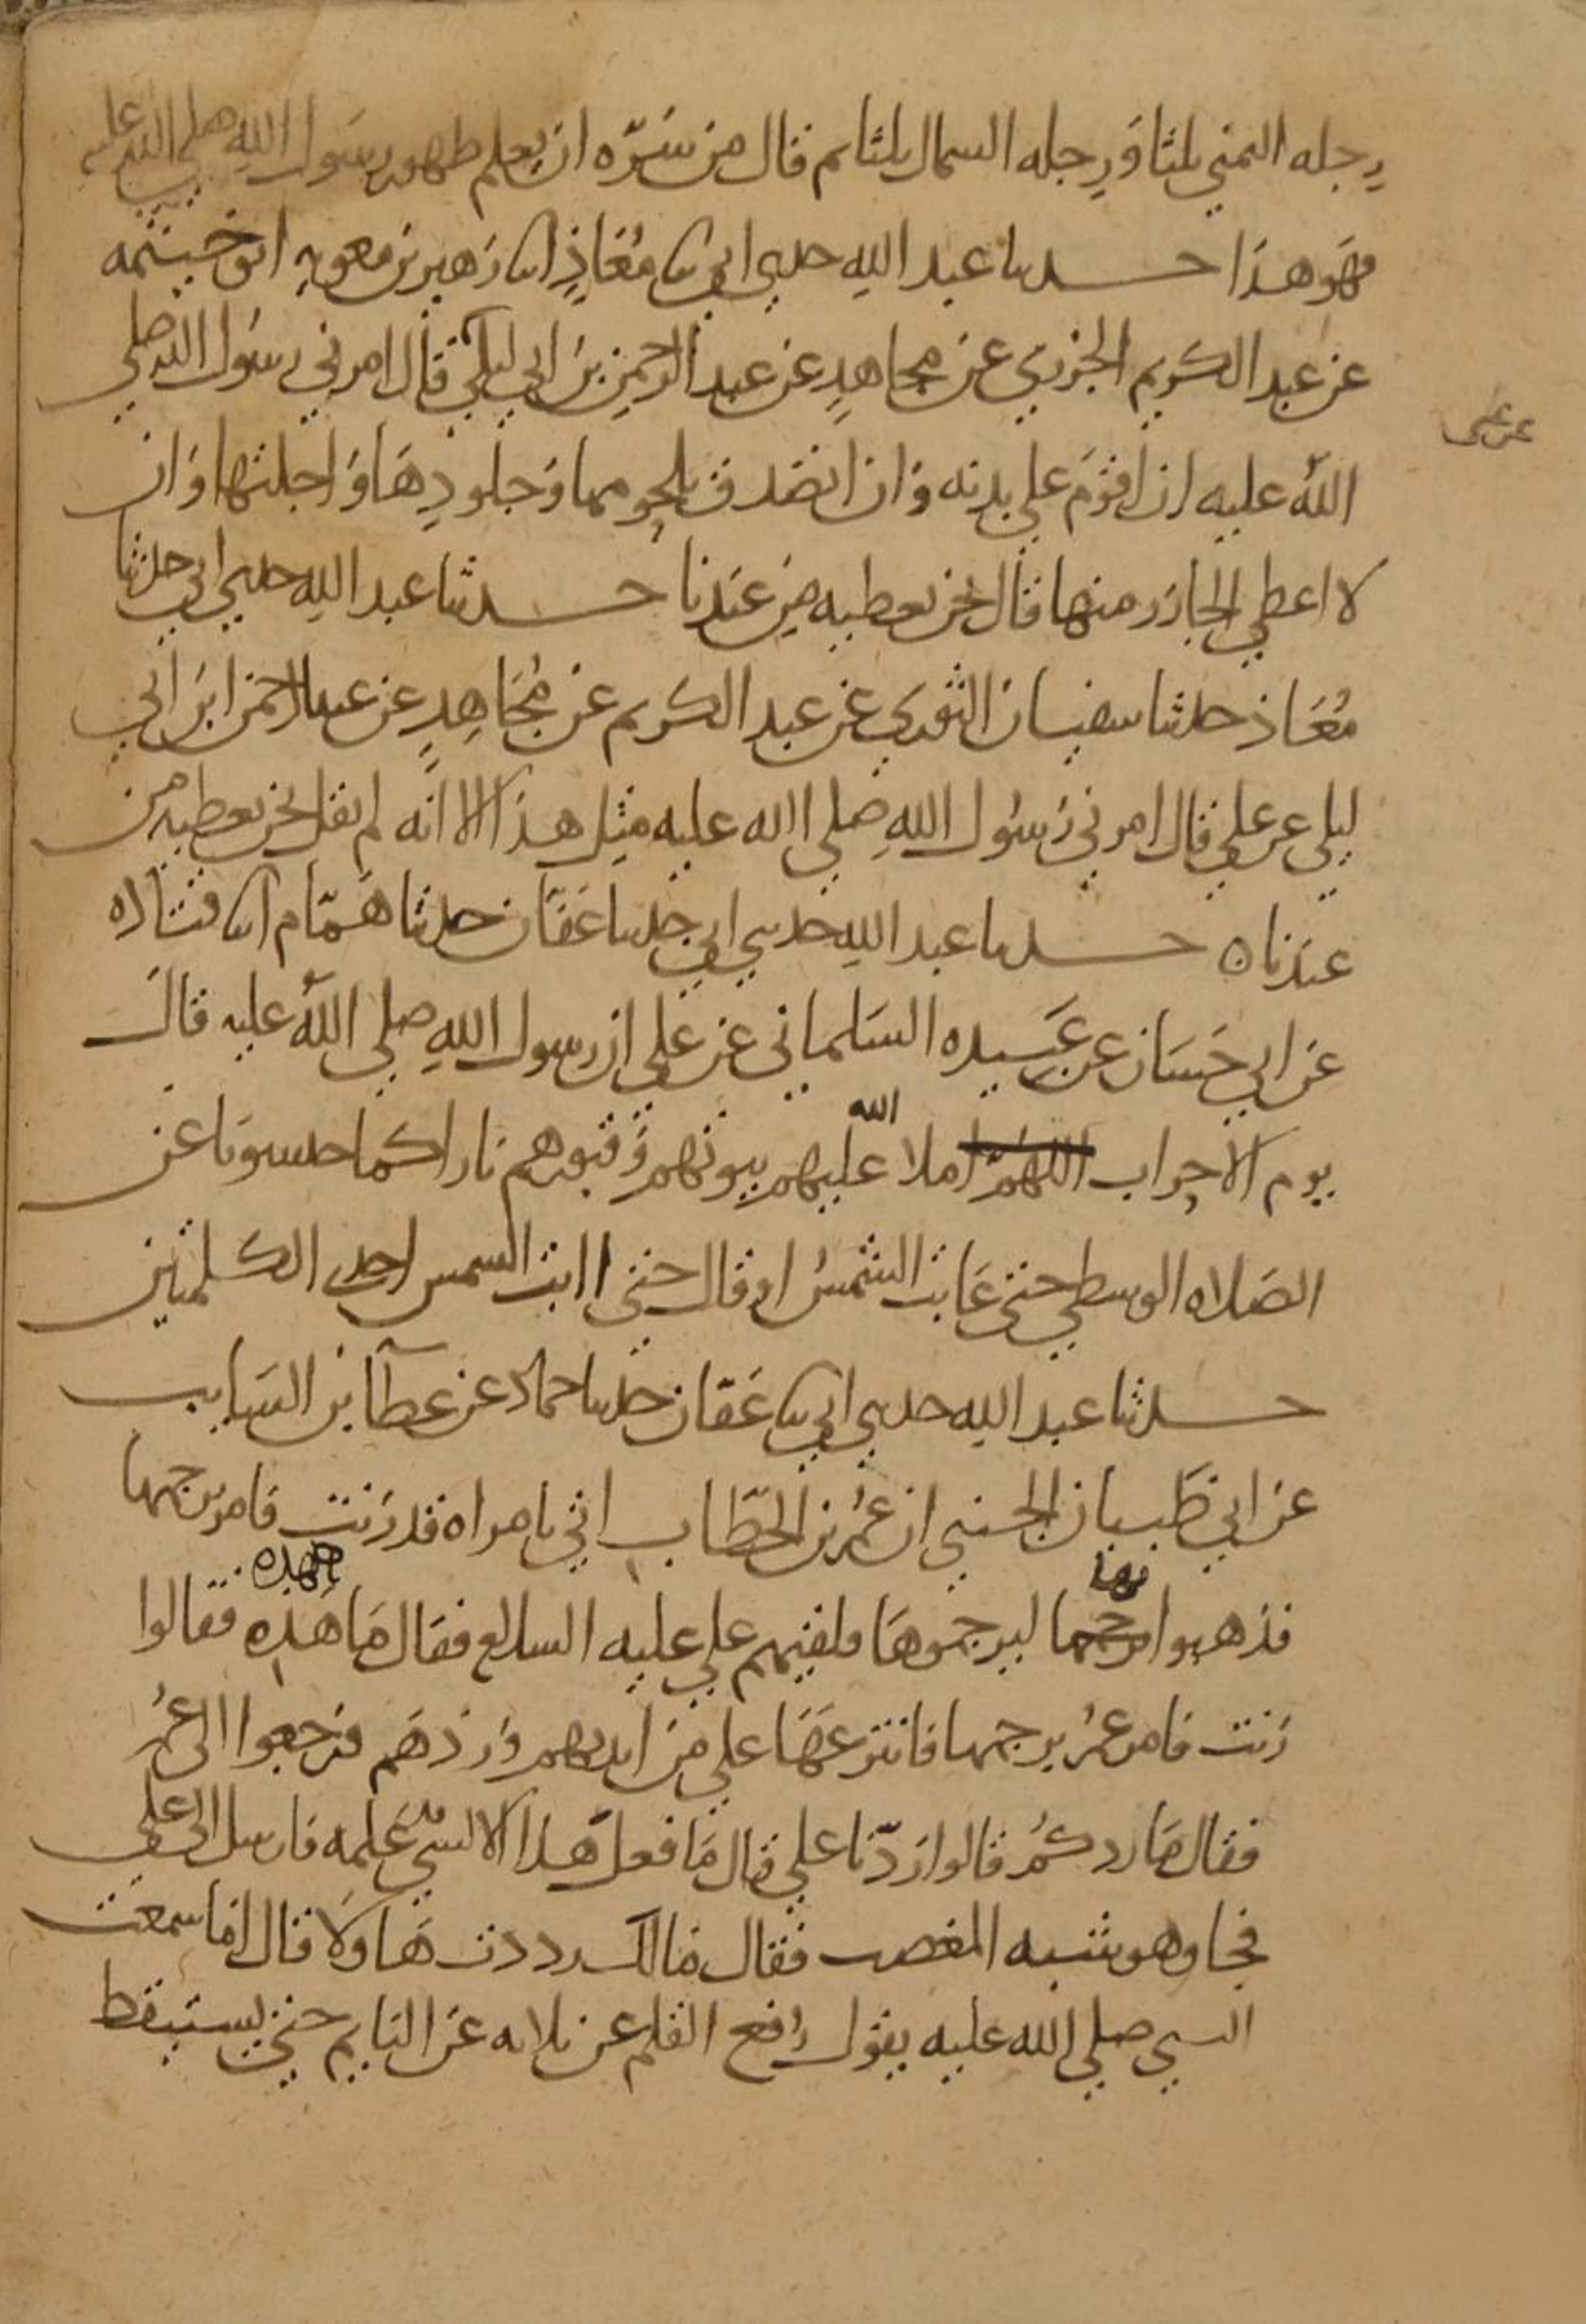 رجله اليمني ثلثا وَرِجله الشمال ثلثا ثم قال من سَرّه ان يعلم طهور رسَول اللهِ صلي الله عليه
فهَو هذا حدثنا عبد اللهِ حدثني ابي ثنا مُعَاذٍ انا زهير بن معويه ابو خيثمه
عن عبد الكريم الجزري عن مجاهدٍ عن عبد الرحمن بن ابي ليلي قال امرني رسول الله صلي
عن علي
اللهُ عليه ان اقوَم علي بدنه وَان اتصدق بلحومها وَجلودِهَا وَاجلتها وَان
لا اعطي الجازر منها قال نحن نعطيه مِن عندنا حدثنا عبد اللهِ حدثني ابي حدثنا
مُعَاذ حدثنا سفيان الثوري عن عبد الكريم عن مُجَاهِدٍ عن عبد الرحمن ابن ابي
ليلي عن علي قال امرني رَسوُل اللهِ صلي الله عليه مثِل هذا الا انه لم يقل نحن نعطيه من
عندنا ه حدثنا عبد اللهِ حدثني ابي حدثنا عَفّان حدثنا هَمّام انا قتاده
عن ابي حَسَان عن عَبيده السَلماني عن علي ان رسول اللهِ صلي اللهُ عليه قال
يوم الاحزاب اللهُمّ املا الله عليهم بيوتهم وَقبورهم نارا كما حبسونا عن
الصَلاه الوسطي حتي غابت الشمسُ او قال حتي اابت الشمس احدي الكلمتين
حدثنا عبد الله حدثني ابي ثنا عَفّان حدثنا حماد عن عطآ بن السَايب
عن ابي ظَبيان الجنبي ان عُمر بن الخطّاب اتي بامراه قد زَنت فامر برجمها
فذهبوا برجمها بها ليرجموهَا فلقيهم علي عليه السلام فقال مَا هَذِه لهذه فقالوا
زَنت فامر عمرُ برجمها فانتزعَهَا علي من ايديهم وَردَهَم فرَجعوا الي عُمر
فقال مَا ردكُم قالوا رَدّنا علي قال مَا فعل هَذا الا لشي قد عَلمه فارسل الي علي
فجا وهو شبه المغضب فقال مَالك رددت هَاولا قال امَا سمعت
النبي صلي الله عليه يقول رُفع القلم عن ثلاثه عَن النايم حتي يستيقظ